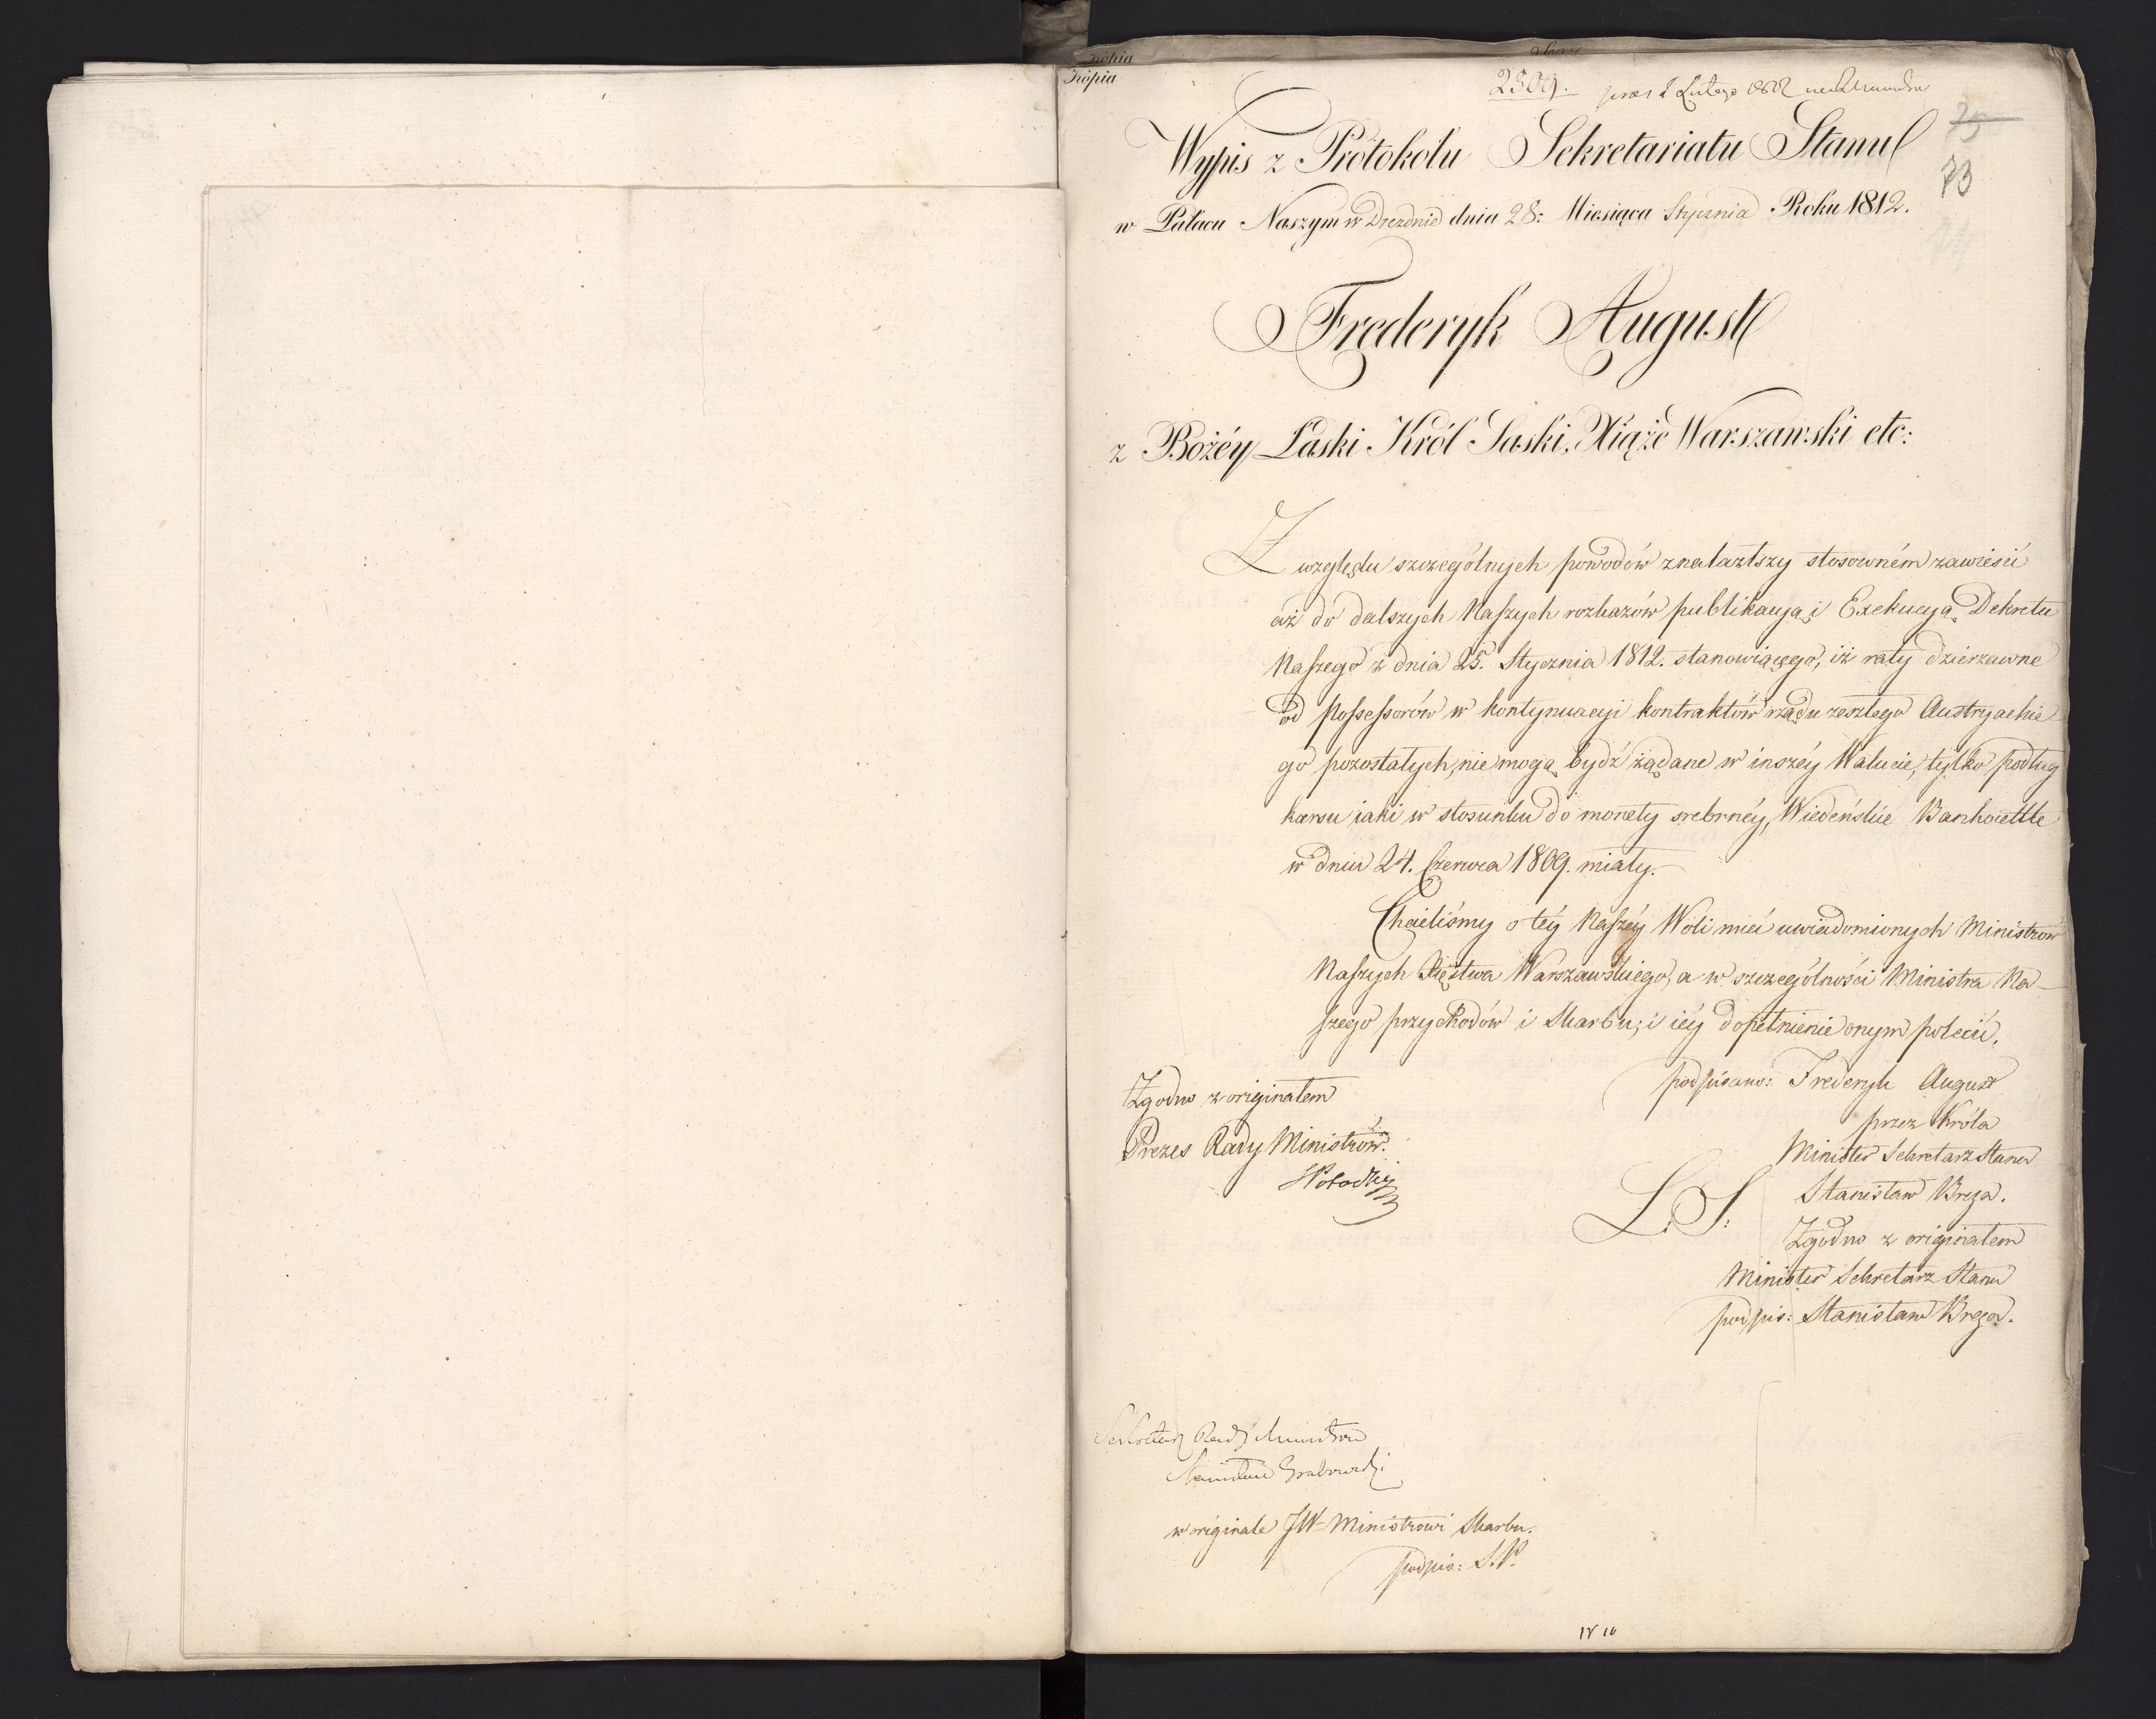 Kopia
Kopia
2509. præs 2 Lutego 1812
75
73
Wypis z Protokołu Sekretariatu Stanu
w Pałacu Naszym w Dreźdnie dnia 28: Miesiąca Stycznia Roku 1812.
Frederyk August
z Bożéy Łaski Król Saski, Xiąże Warszawski etc:
Z względu szczególnych powodów znalazłszy stosowném zawiesić
aż do dalszych Naszych rozkazów publikacyą i Exekucyą Dekretu
Naszego z dnia 25. Stycznia 1812. stanowiącego, iż raty dzierzawne
od Possessorów w kontynuacyi kontraktów rządu zeszłego Austryackie-
go pozostałych, nie mogą bydź żądane w inszéy Walucie, tylko podług
kursu iaki w stosunku do monety srebrnéy, Wiedeńskie Bankocetle
w dniu 24. Czerwca 1809. miały.
Chcieliśmy o téy Naszéy Woli mieć uwiadomionych Ministrów
Naszych Xięstwa Warszawskiego, a w szczególności Ministra Na-
szego przychodów i Skarbu; i iéy dopełnienie onym polecić.
podpisano: Frederyk August
przez Króla
Minister Sekretarz Stanu
Stanisław Breza.
L. S:
Zgodno z originałem
Minister Sekretarz Stanu
podpis: Stanisław Breza.
Zgodno z originałem
Prezes Rady Ministrów.
SPotocki
Sekretarz Rady Ministrów
Stanisław Grabowski
w originale JW Ministrowi Skarbu.
podpis: S. P.